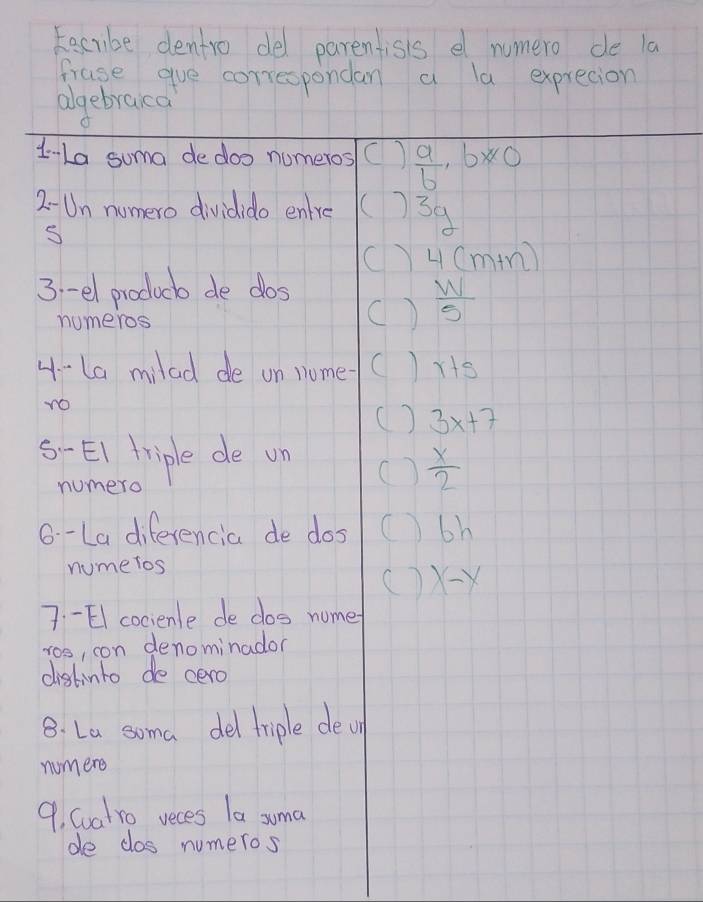 Escribe dentro del parentisis el numero de la
frase que correspondan a la exprecion
algebraica
1.-La suma de dos numeros
2.-Un numero dividido entre
5
3.-el producto de dos
numeros
4.-La mitad de un nume-
ro
5.-El triple de un
numero
6.-La diferencia de dos
numeros
7.-El cociente de dos nume
ros, con denominador
distinto de cero
8. La soma del triple de un
numero
9. Cuatro veces la suma
de dos numeros
( ) a/b, b≠0
( ) 3g
( ) 4(m+n)
( ) W/5
( ) r+s
( ) 3x+7
( ) x/2
( ) bh
( ) X-Y